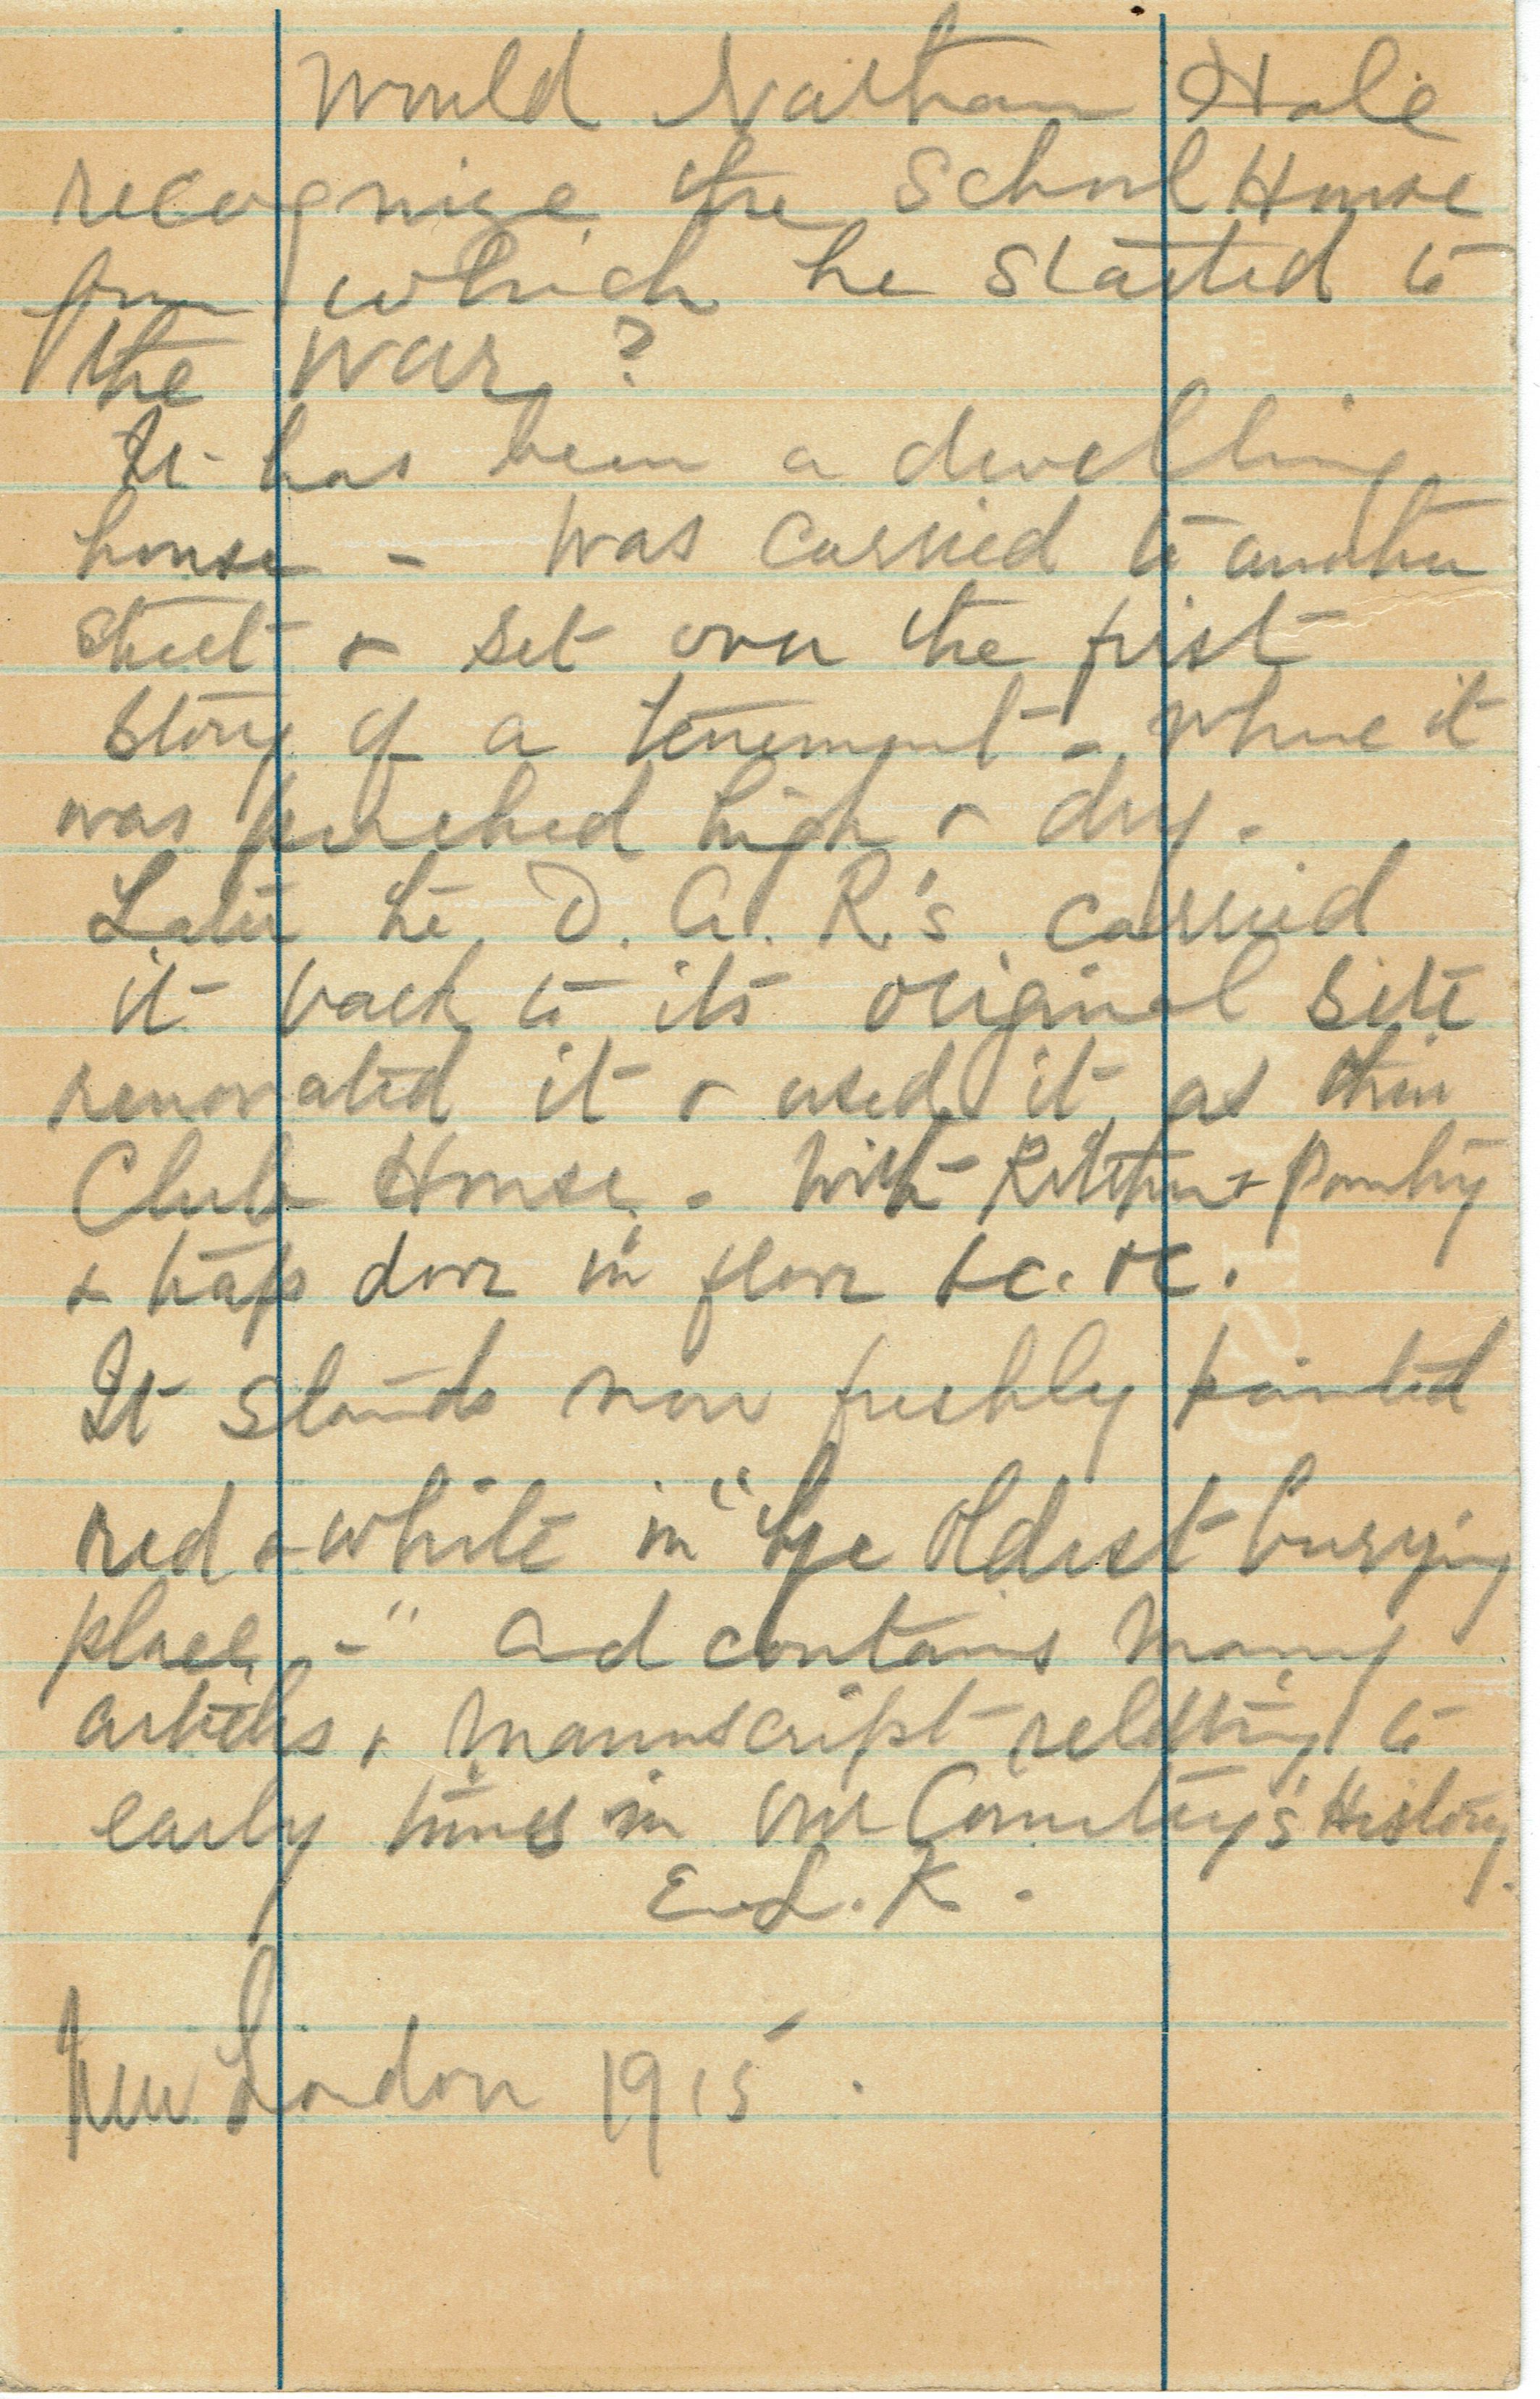 Would Nathan Hale
recognize the School House
from which he started to
the War?
It has been a dwelling
house - was carried to another
street & set over the first
story of a tenement - where it
was perched high & dry.
Later the D. A. R.'s carried
it back to its original site
renovated it & used it as their
Club House. - With Kitchen & Pantry
& trap door in floor &c. &c.
It stands now freshly painted
red & white in "Ye Oldest burying
place -" and contains many
articles & manuscript relating to
early times in our Country's History.
E. L. K.
New London 1915.